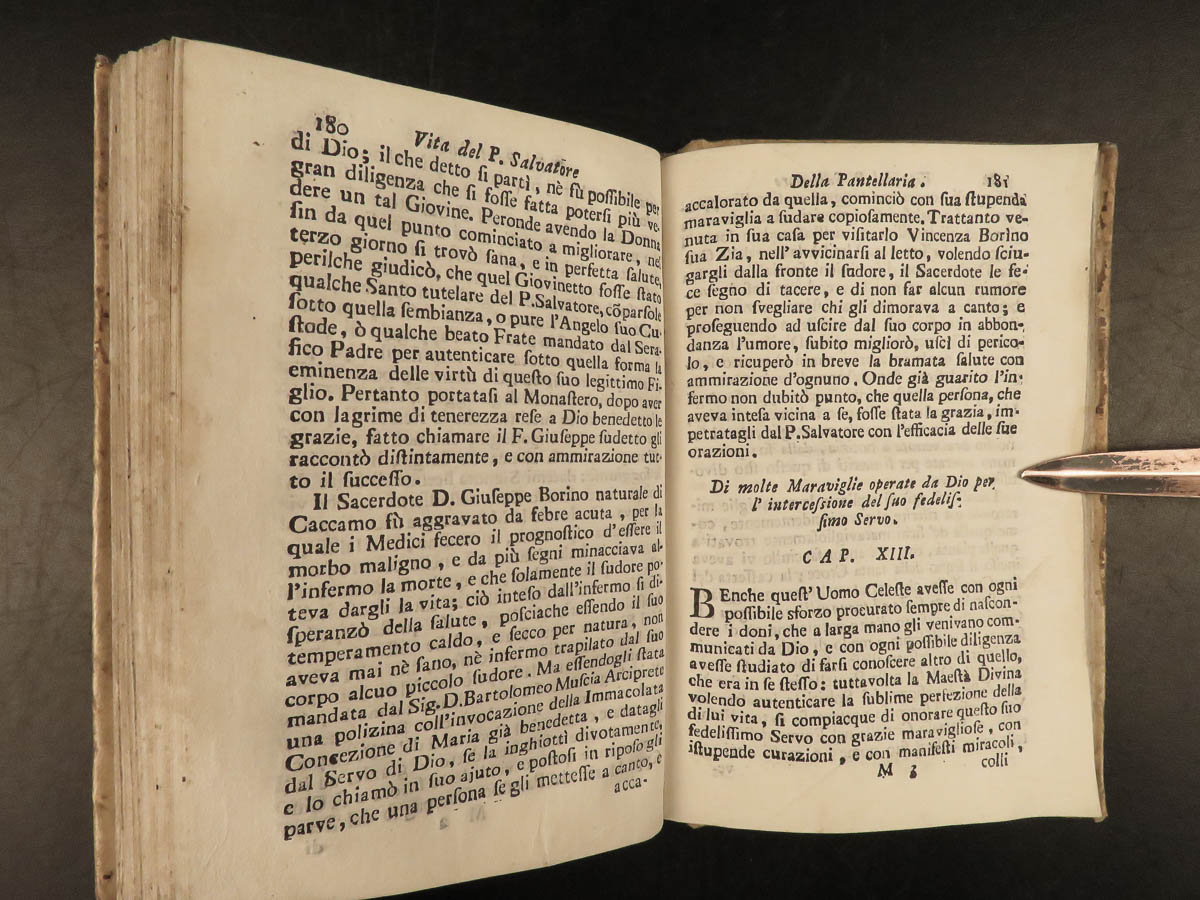 180
Vita del P. Salvatore
di Dio; il che detto ſi partì, nè fù poſſibile per
gran diligenza che ſi foſſe fatta poterſi più ve-
dere un tal Giovine. Peronde avendo la Donna
ſin da quel punto cominciato a migliorare, nel
terzo giorno ſi trovò ſana, e in perfetta ſalute,
perilche giudicò, che quel Giovinetto foſſe ſtato
qualche Santo tutelare del P. Salvatore, cõparſole
ſotto quella ſembianza, o pure l'Angelo ſuo Cu-
ſtode, ò qualche beato Frate mandato dal Sera-
fico Padre per autenticare ſotto quella forma la
eminenza delle virtù di queſto ſuo legittimo Fi-
glio. Pertanto portataſi al Monaſtero, dopo aver
con lagrime di tenerezza reſe a Dio benedetto le
grazie, fatto chiamare il F. Giuſeppe ſudetto gli
raccontò diſtintamente, e con ammirazione tut-
to il ſucceſſo.
Il Sacerdote D. Giuſeppe Borino naturale di
Caccamo fù aggravato da febre acuta, per la
quale i Medici fecero il prognoſtico d'eſſere il
morbo maligno, e da più ſegni minacciava al-
l'infermo la morte, e che ſolamente il ſudore po-
teva dargli la vita; ciò inteſo dall'infermo ſi di-
ſperanzò della ſalute, poſciache eſſendo il ſuo
temperamento caldo, e ſecco per natura, non
aveva mai nè ſano, nè infermo trapilato dal ſuo
corpo alcuo piccolo ſudore. Ma eſſendogli ſtata
mandata dal Sig. D. Bartolomeo Muſcia Arciprete
una polizina coll'invocazione della Immacolata
Concezione di Maria già benedetta, e datagli
dal Servo di Dio, ſe la inghiottì divotamente,
e lo chiamò in ſuo ajuto, e poſtoſi in ripoſo gli
parve, che una perſona ſe gli metteſſe a canto, e
acca-
Della Pantellaria.
181
accalorato da quella, cominciò con ſua ſtupenda
maraviglia a ſudare copioſamente. Trattanto ve-
nuta in ſua caſa per viſitarlo Vincenza Borino
ſua Zia, nell'avvicinarſi al letto, volendo ſciu-
gargli dalla fronte il ſudore, il Sacerdote le fe-
ce ſegno di tacere, e di non far alcun rumore
per non ſvegliare chi gli dimorava a canto; e
proſeguendo ad uſcire dal ſuo corpo in abbon-
danza l'umore, ſubito migliorò, uſcì di perico-
lo, e ricuperò in breve la bramata ſalute con
ammirazione d'ognuno. Onde già guarito l'in-
fermo non dubitò punto, che quella perſona, che
aveva inteſa vicina a ſe, foſſe ſtata la grazia, im-
petratagli dal P. Salvatore con l'efficacia delle ſue
orazioni.
Di molte Maraviglie operate da Dio per
l' interceſſione del ſuo fedeliſ-
ſimo Servo.
CAP. XIII.
BEnche queſt' Uomo Celeſte aveſſe con ogni
poſſibile sforzo procurato ſempre di naſcon-
dere i doni, che a larga mano gli venivano com-
municati da Dio, e con ogni poſſibile diligenza
aveſſe ſtudiato di farſi conoſcere altro di quello,
che era in ſe ſteſſo: tuttavolta la Maeſtà Divina
volendo autenticare la ſublime perfezione della
di lui vita, ſi compiacque di onorare queſto ſuo
fedeliſſimo Servo con grazie maraviglioſe, con
iſtupende curazioni, e con manifeſti miracoli,
M 3
colli